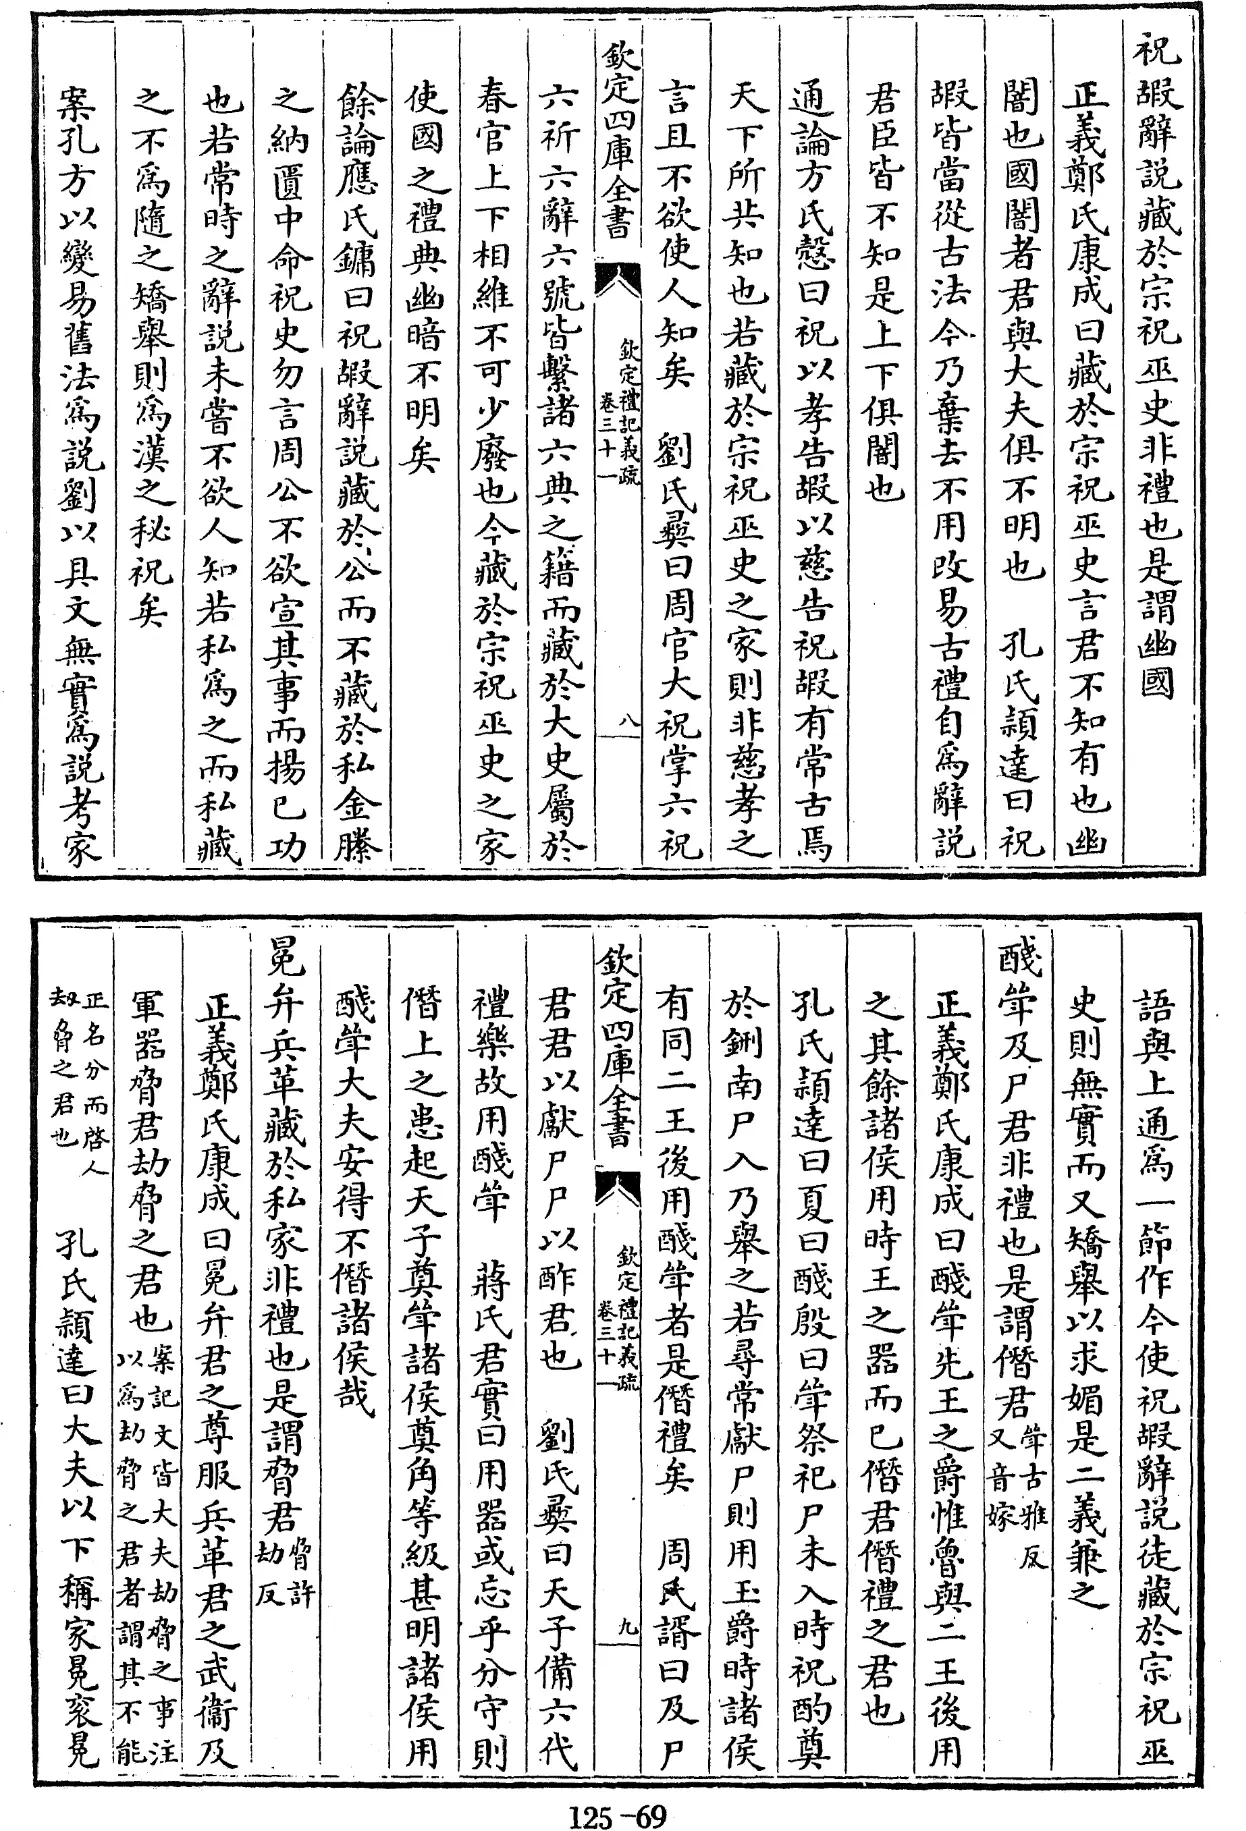 祝嘏辭說藏於宗祝巫史非禮也是謂幽國
正義鄭氏康成曰藏於宗祝巫史言君不知有也幽
闇也國闇者君與大夫俱不明也　孔氏穎達曰祝
嘏皆當從古法今乃棄去不用改易古禮自爲辭說
君臣皆不知是上下俱闇也
通論方氏慤曰祝以孝告嘏以慈告祝嘏有常古焉
天下所共知也若藏於宗祝巫史之家則非慈孝之
言且不欲使人知矣　劉氏彝曰周官大祝掌六祝
欽定四庫全書　欽定禮記義疏卷三十一　八
六祈六辭六號皆繫諸六典之籍而藏於大史屬於
春官上下相維不可少廢也今藏於宗祝巫史之家
使國之禮典幽暗不明矣
餘論應氏鏞曰祝嘏辭說藏於公而不藏於私金縢
之納匱中命祝史勿言周公不欲宣其事而揚已功
也若常時之辭說未嘗不欲人知若私爲之而私藏
之不爲隨之矯舉則爲漢之秘祝矣
案孔方以變易舊法爲說劉以具文無實爲說考家
語與上通爲一節作今使祝嘏辭說徒藏於宗祝巫
史則無實而又矯舉以求媚是二義兼之
醆斝及尸君非禮也是謂僭君斝古雅反又音嫁
正義鄭氏康成曰醆斝先王之爵惟魯與二王後用
之其餘諸侯用時王之器而已僭君僭禮之君也
孔氏穎達曰夏曰醆殷曰斝祭祀尸未入時祝酌奠
於鉶南尸入乃舉之若尋常獻尸則用玉爵時諸侯
有同二王後用醆斝者是僭禮矣　周氏諝曰及尸
欽定四庫全書　欽定禮記義疏卷三十一　九
君君以獻尸尸以酢君也　劉氏彝曰天子備六代
禮樂故用醆斝　蔣氏君實曰用器或忘乎分守則
僭上之患起天子奠斝諸侯奠角等級甚明諸侯用
醆斝大夫安得不僭諸侯哉
冕弁兵革藏於私家非禮也是謂脅君脅許劫反
正義鄭氏康成曰冕弁君之尊服兵革君之武衞及
軍器脅君劫脅之君也案記文皆大夫劫脅之事注以爲劫脅之君者謂其不能
正名分而啓人劫脅之君也　孔氏穎達曰大夫以下稱家冕衮冕
125-69